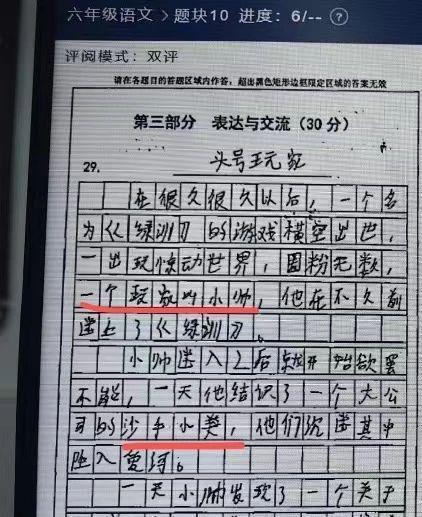 六年级语文 > 题块10 进度：6/-- ?
评阅模式：双评
请在各题目的答题区域内作答，超出黑色矩形边框限定区域的答案无效
第三部分 表达与交流（30分）
29. 头号玩家
在很久很久以后，一个名
为《绿洲》的游戏横空出世，
一出现惊动世界，圈粉无数，
一个玩家叫小帅，他在不久前
迷上了《绿洲》。
小帅进入之后就开始欲罢
不能，一天他结识了一个大公
司的沙手小美，他们沉迷其中
坠入爱河。
一天小帅发现了一个关于